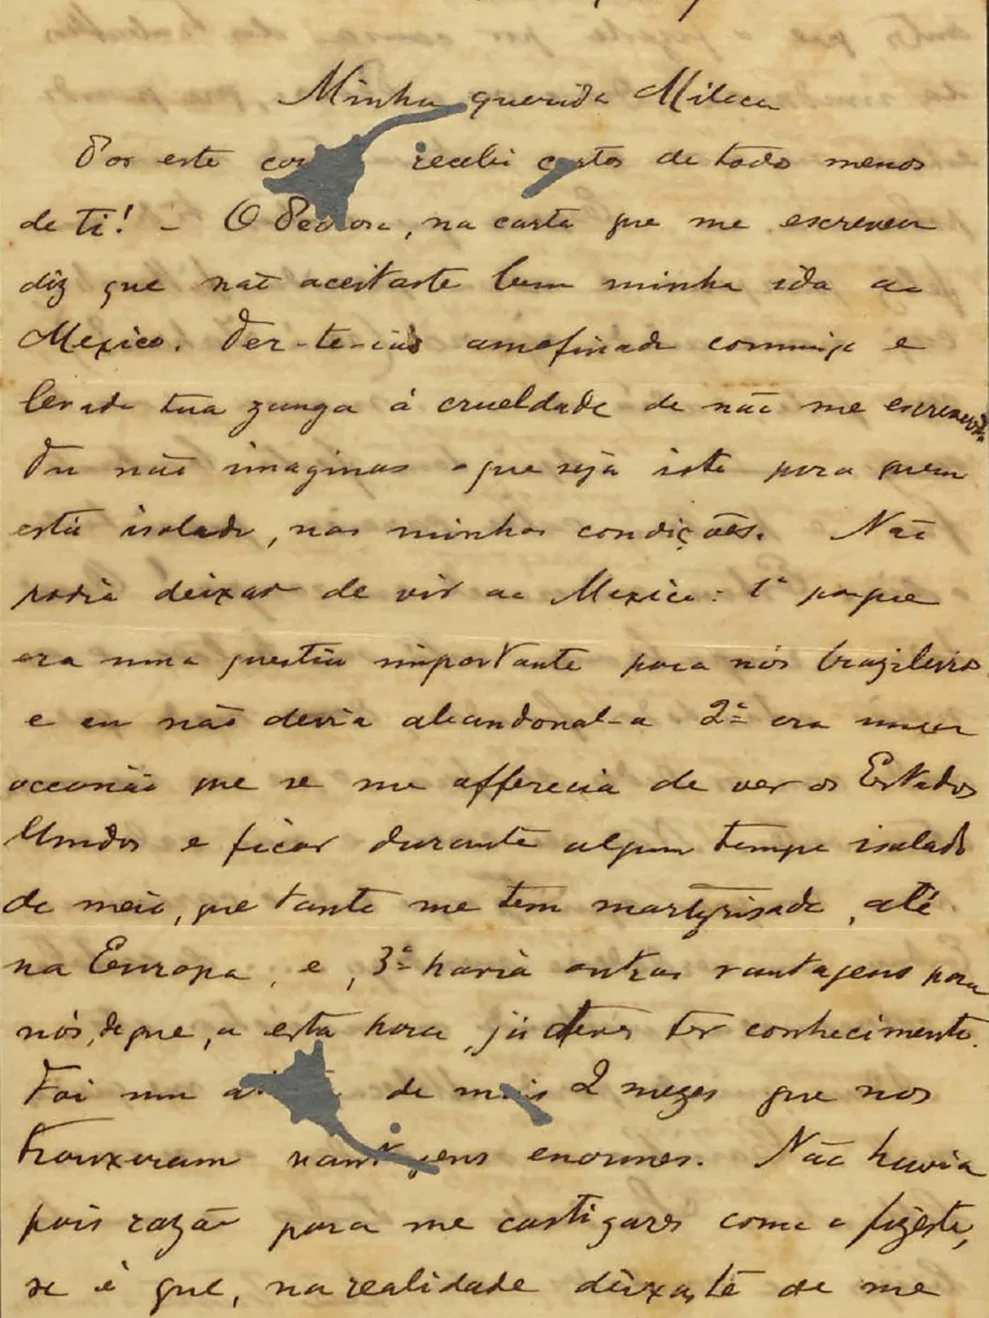 Minha querida Mileca
Por este recebi cartas de todos menos
de ti! - O na carta que me escreveu
diz que não aceitaste bem minha ida ao
Mexico. Ter-te-iás amofinado commigo e
levado tua zanga á crueldade de não me escrever?
Tu não imaginas o que seja isto para quem
está isolado, nas minhas condições. Não
podia deixar de vir ao Mexico: 1º porque
era uma questão importante para nós brazileiros
e eu não devia abandonal-a 2º era
occasião que se me offerecia de ver os Estados
Unidos e ficar durante algum tempo isolado
do meio, que tanto me tem martyrisado, até
na Europa, e, 3º havia outras vantagens para
nós, de que, a esta hora, já deves ter conhecimento.
Foi um de mais 2 mezes que nos
trouxeram vantagens enormes. Não havia
pois razão para me castigares como o fizeste,
se é que, na realidade deixaste de me